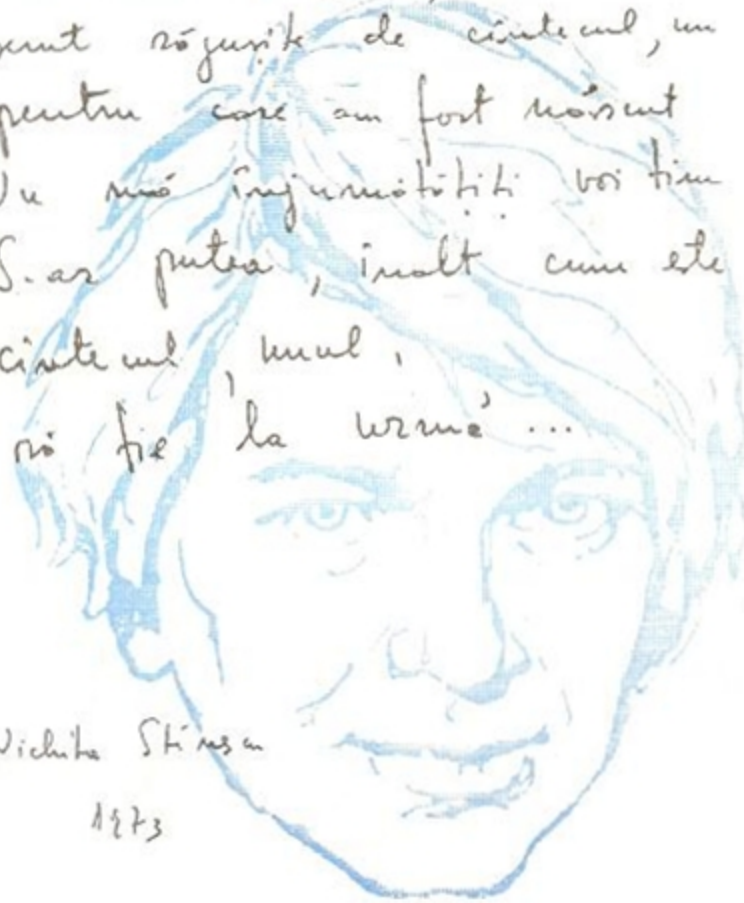 răgușite de cîntecul, un
pentru care am fost născut
Nu mă înjumătățiți voi
S-ar putea, înalt cum este
cîntecul, unul,
să fie la urmă...
Nichita Stănescu
1973